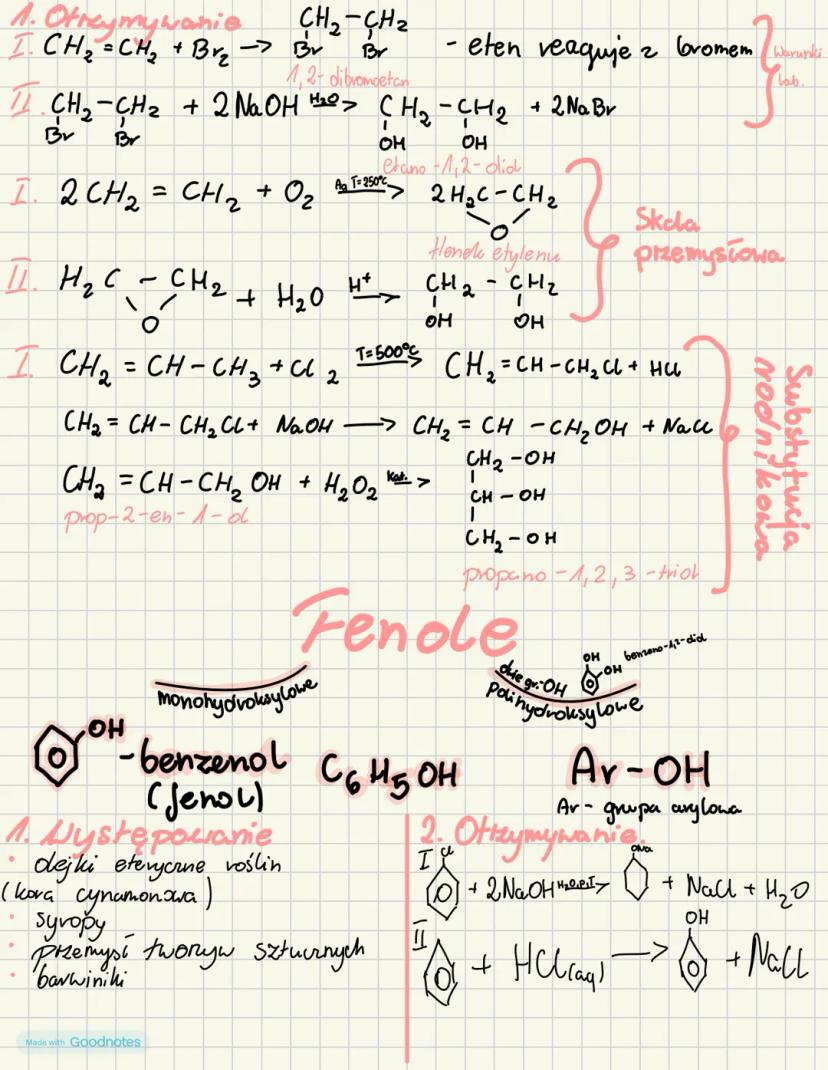 1. Otrzymywanie
I. CH₂=CH₂ + Br₂ → CH₂-CH₂ - eten reaguje z bromem
Br Br
1,2-dibromoetan
Warunki
lab.
II. CH₂-CH₂ + 2NaOH H₂O> CH₂-CH₂ + 2NaBr
Br Br OH OH
etano-1,2-diol
I. 2CH₂=CH₂ + O₂ Ag T=250°C → 2H₂C-CH₂
O
tlenek etylenu
Skala
przemysłowa
II. H₂C-CH₂ + H₂O H⁺ → CH₂-CH₂
O OH OH
I. CH₂=CH-CH₃+Cl₂ T=500°C → CH₂=CH-CH₂Cl + HCl
CH₂=CH-CH₂Cl + NaOH → CH₂=CH-CH₂OH + NaCl
CH₂=CH-CH₂OH + H₂O₂ Kat.> CH₂-OH
CH-OH
CH₂-OH
prop-2-en-1-ol
propano-1,2,3-triol
Substytucja
rodnikowa
Fenole
monohydroksylowe
dwie gr.-OH
OH
OH
benzeno-1,2-diol
Polihydroksylowe
OH
-benzenol
(fenol)
C₆H₅OH
Ar-OH
Ar- grupa arylowa
1. Występowanie
• olejki eteryczne roślin
(kora cynamonowa)
• syropy
• przemysł tworyw sztucznych
• barwiniki
2. Otrzymywanie.
I Cl + 2NaOH H₂O,p,T> ONa + NaCl + H₂O
II + HCl(aq) → OH + NaCl
Made with Goodnotes